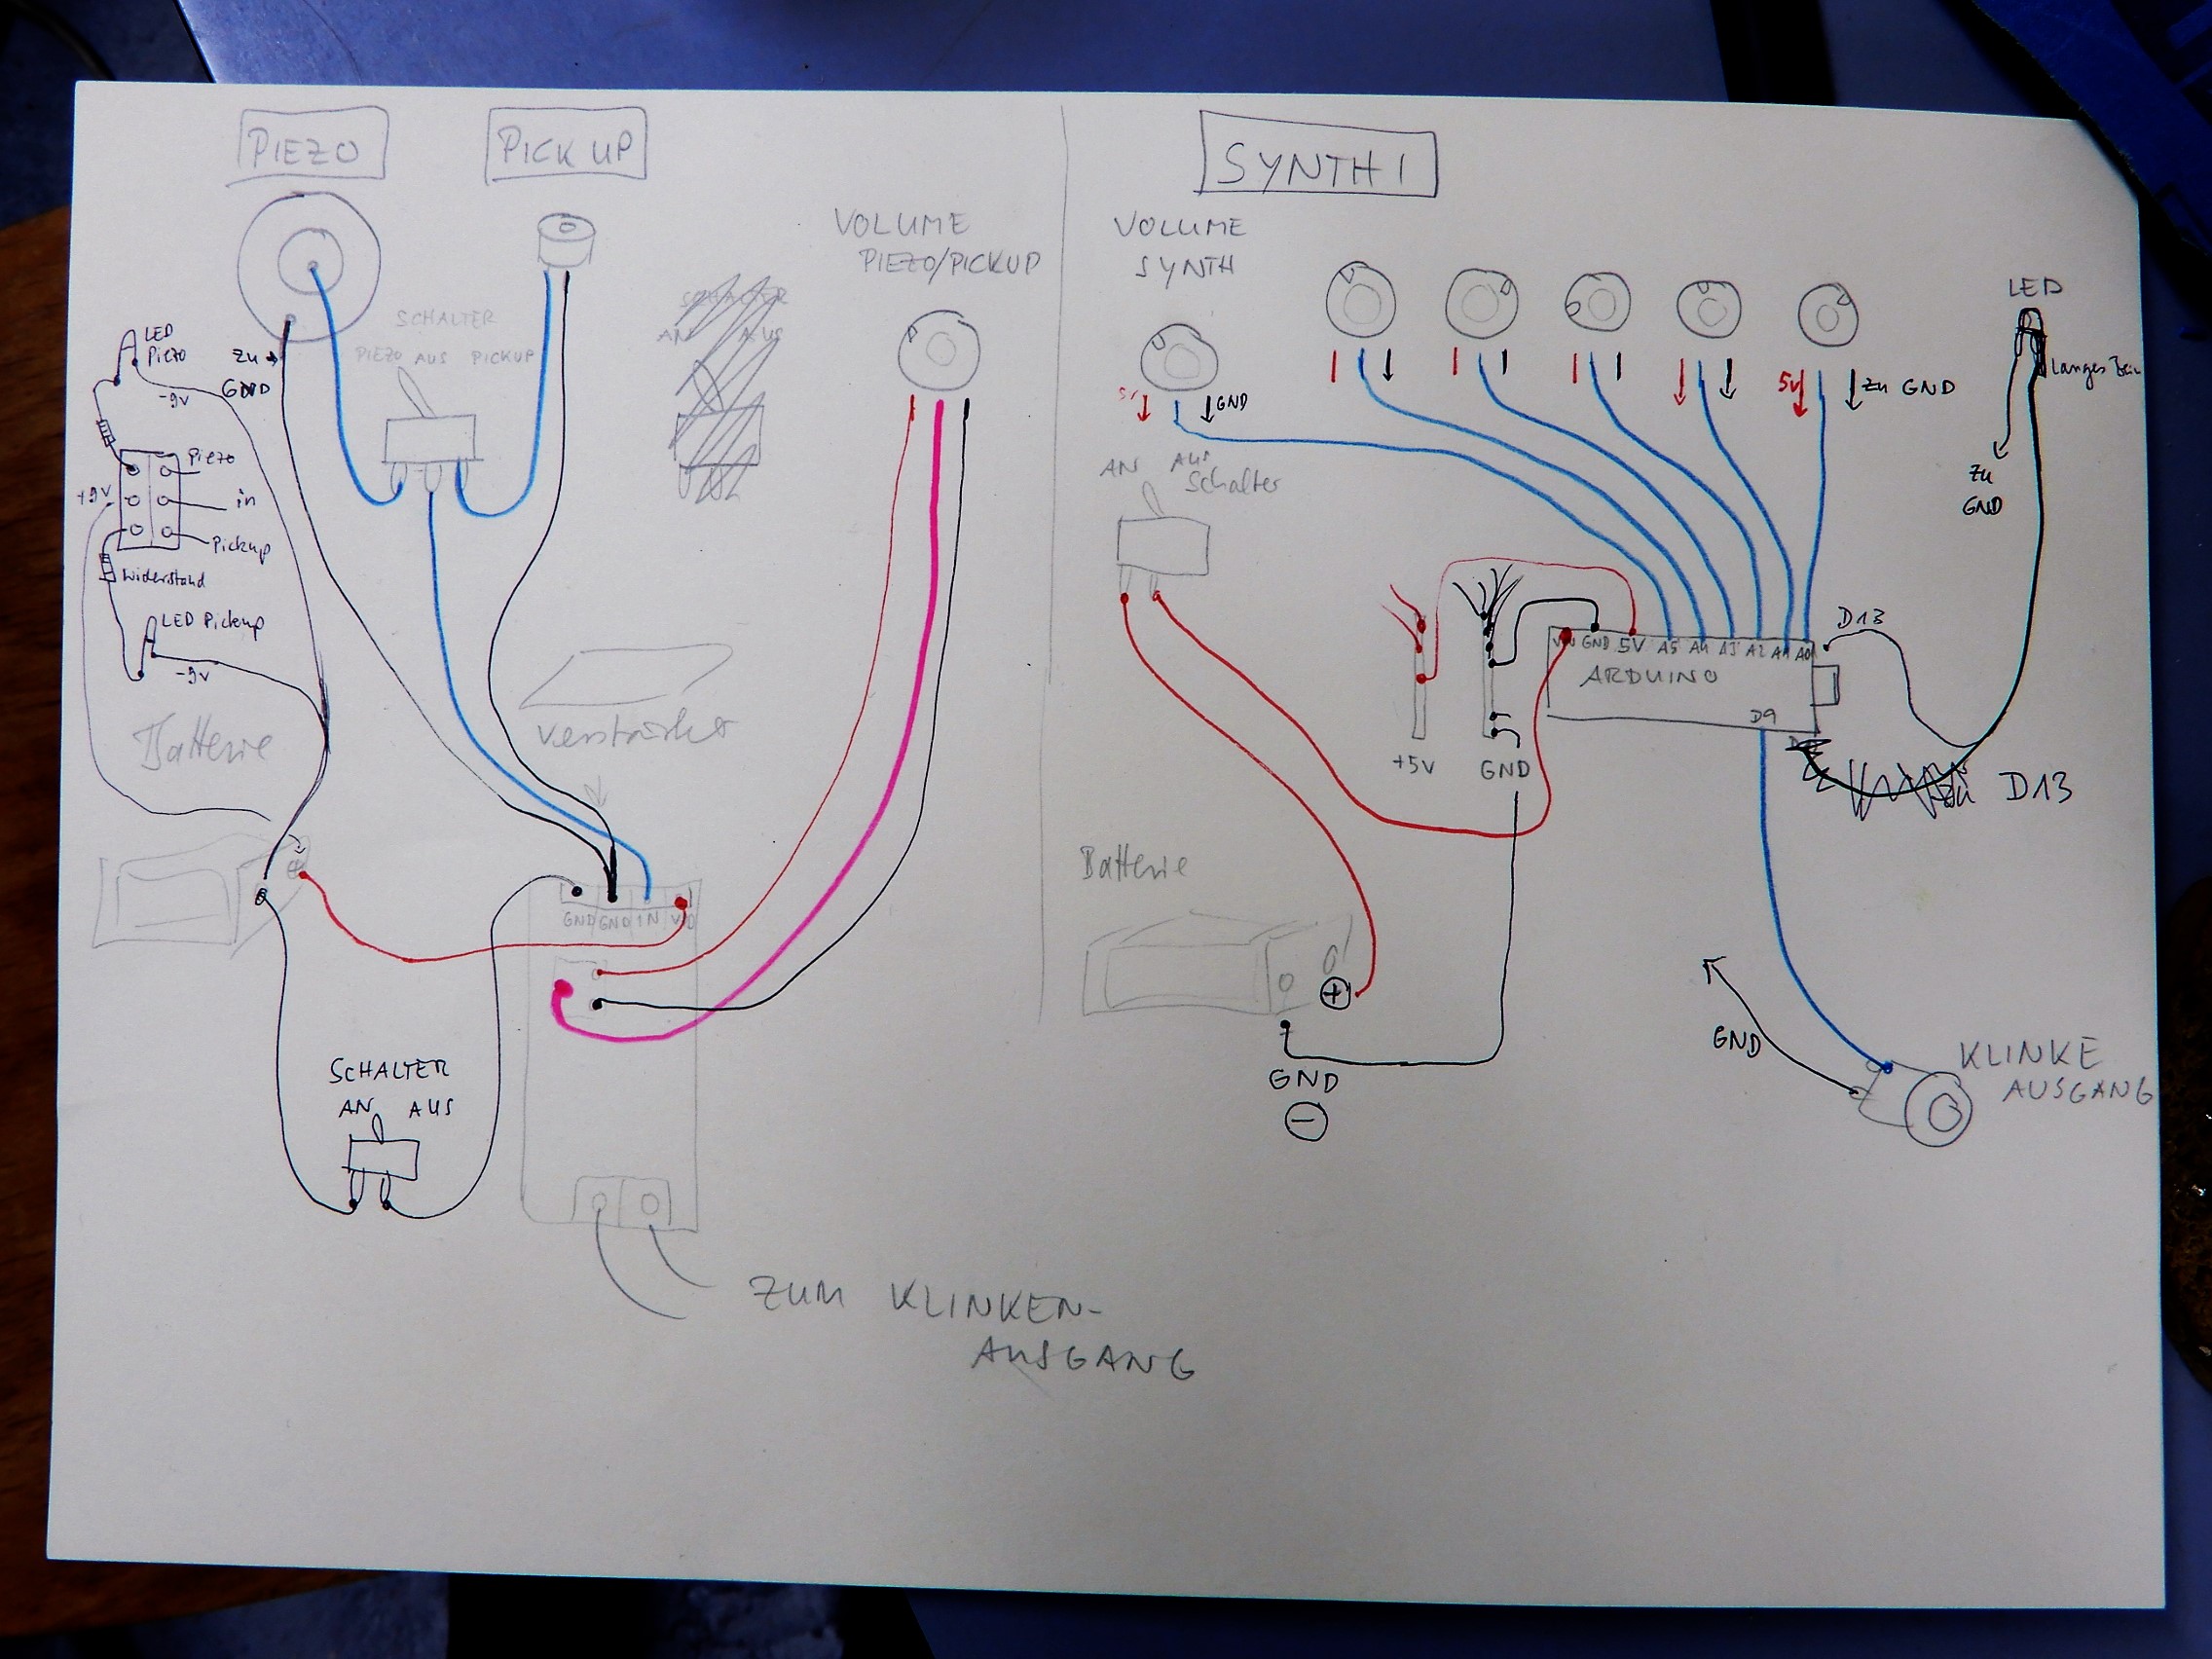 PIEZO
PICK UP
VOLUME
PIEZO/PICKUP
SCHALTER
PIEZO AUS PICKUP
SCHALTER
AN AUS
LED
Piezo
zu
GND
-9v
Piezo
+9V
in
Pickup
Widerstand
LED Pickup
-9v
Batterie
Verstärker
GND GND IN
SCHALTER
AN AUS
ZUM KLINKEN-
AUSGANG
SYNTH 1
VOLUME
SYNTH
GND
5V
zu GND
LED
langes Bein
zu
GND
AN AUS
Schalter
VIN GND 5V A5 A4 A3 A2 A1 A0
D13
ARDUINO
D9
+5V
GND
zu D13
Batterie
+
GND
−
GND
KLINKE
AUSGANG